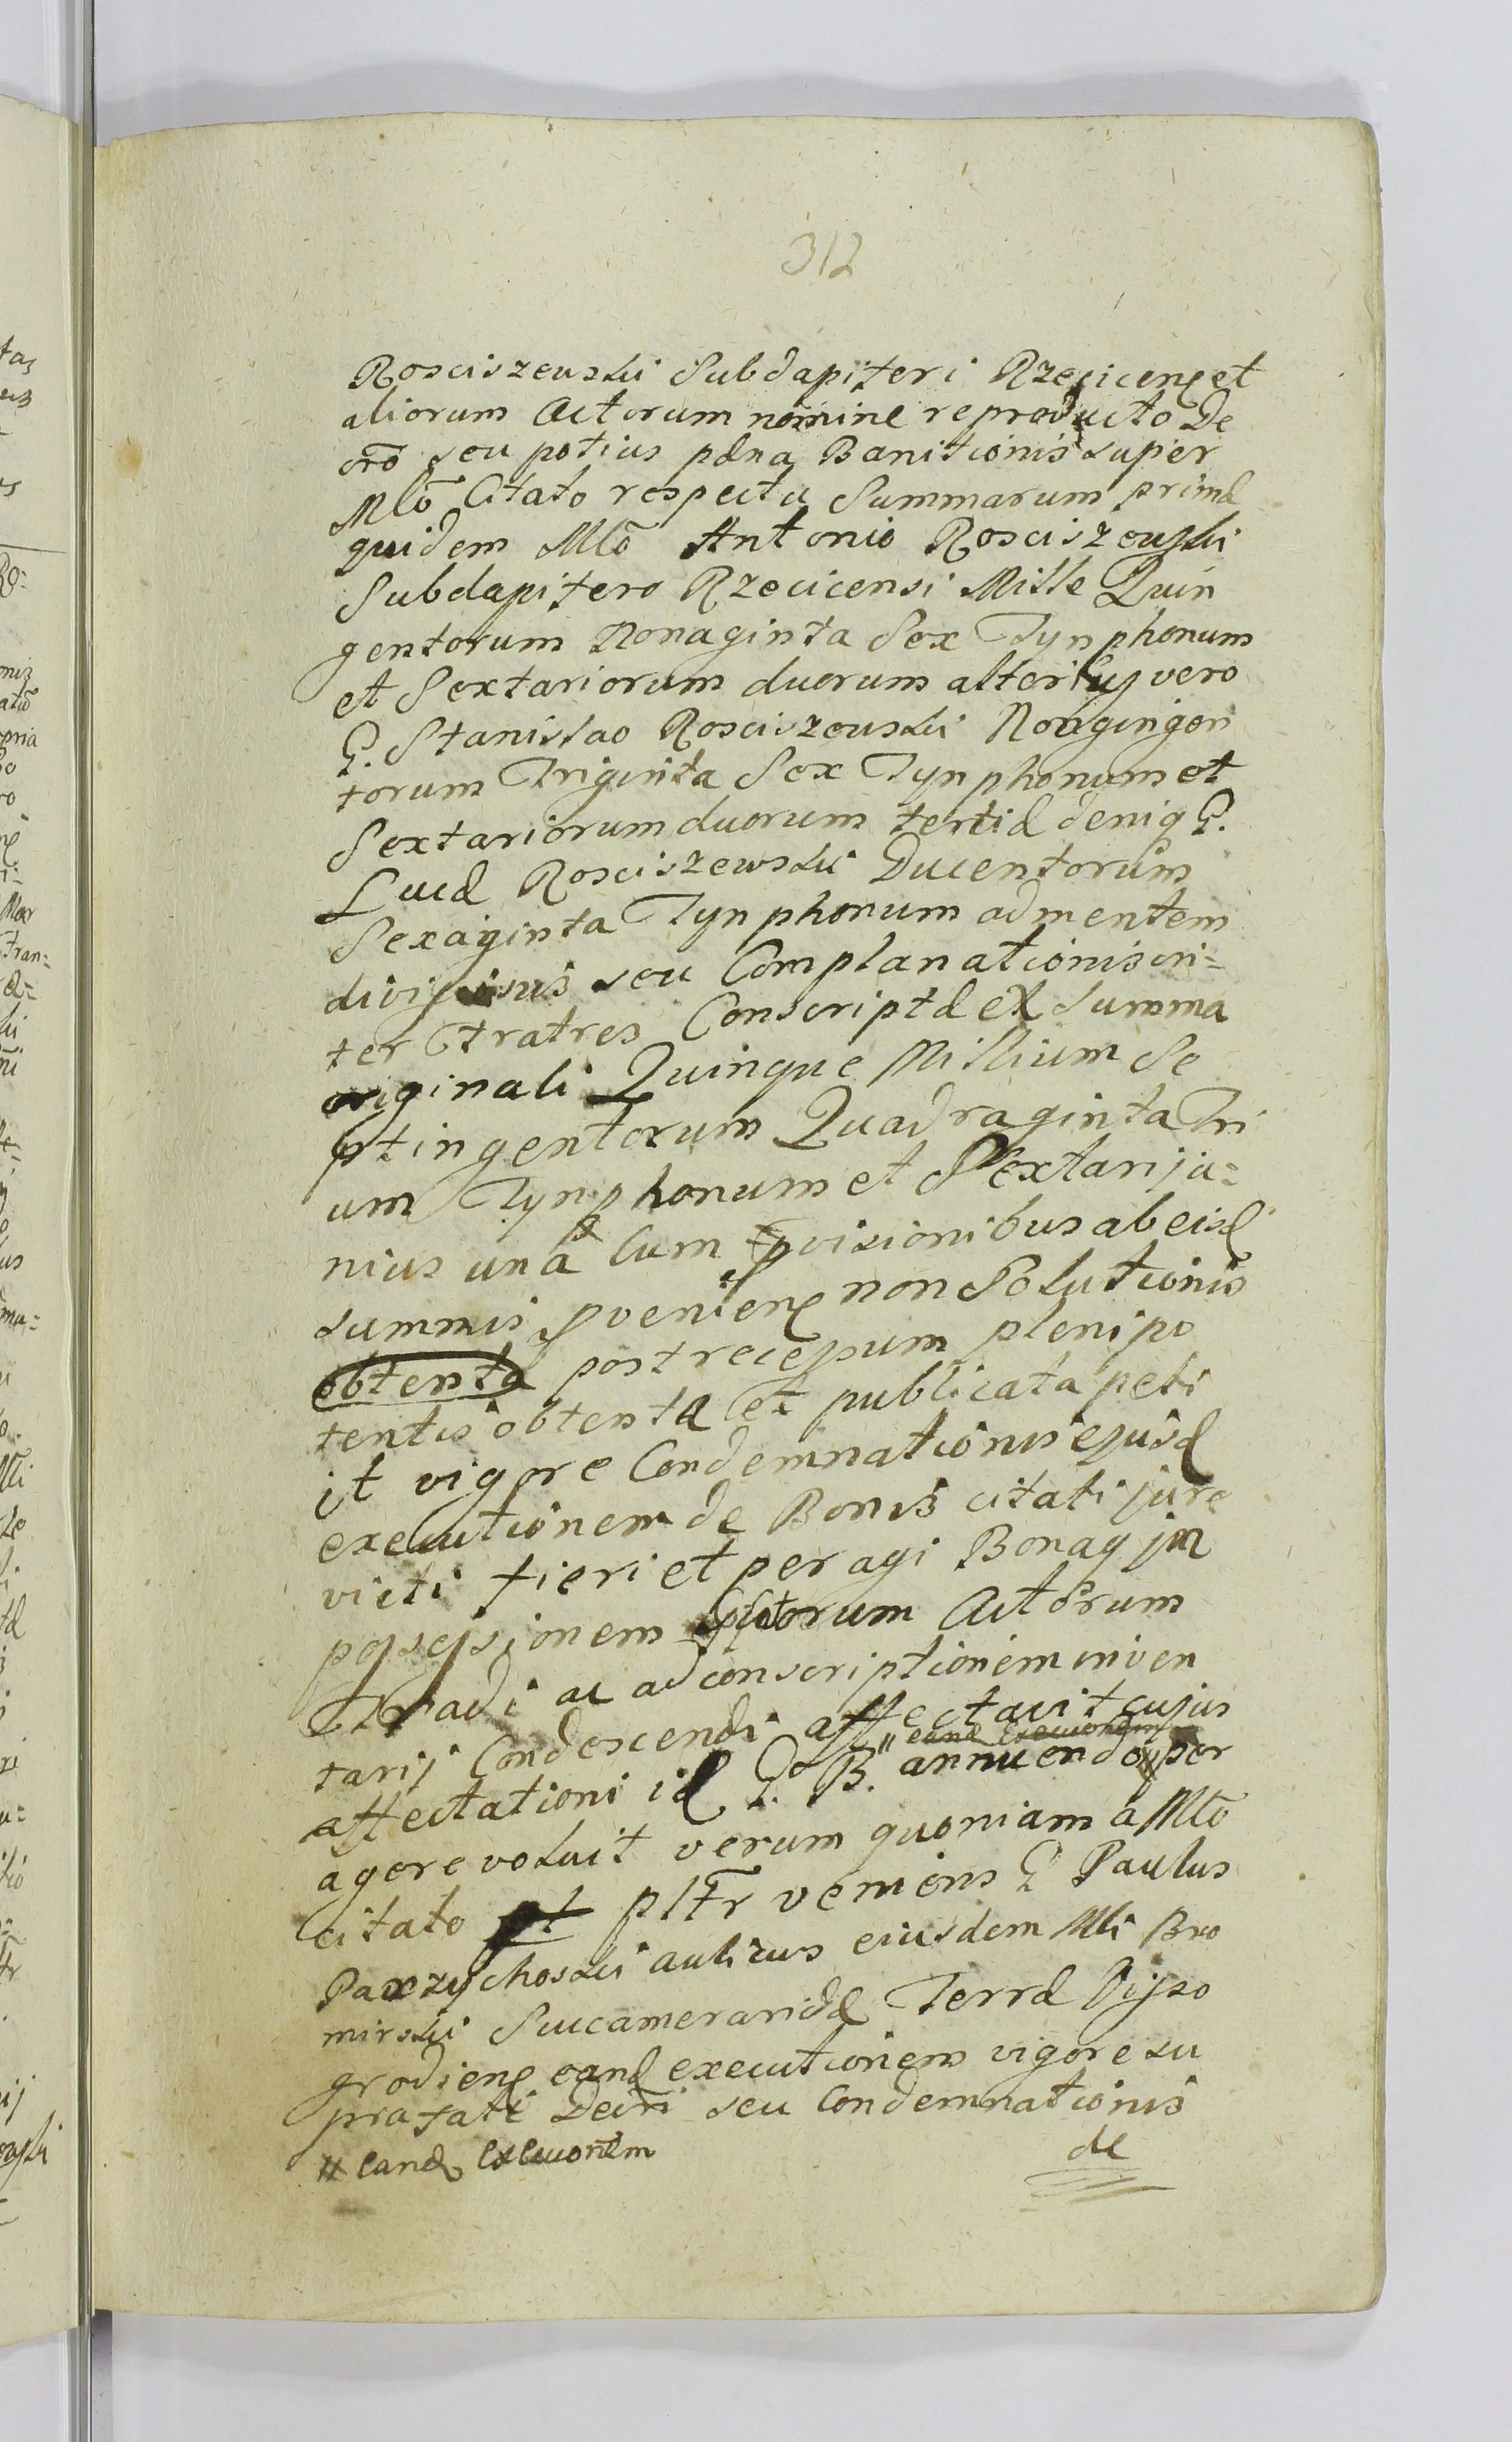 312
Rosciszewski Subdapiferi Rzecicens et
aliorum Actorum nomine reproducto De
cro seu potius pdna Banitionis super
Mlo Citato respectu Summarum primae
quidem Mlo Antonio Rosciszewski
Subdapifero Rzecicensi Mille Quin
gentorum Nonaginta Sex Tynphonum
et Sextariorum duorum alterius vero
G. Stanislao Rosciszewski Nongingen
torum Triginta Sex Tynphonum et
Sextariorum duorum tertiae deniq G.
Lucae Rosciszewski Ducentorum
Sexaginta Tynphonum ad mentem
divisionis seu Complanationis in=
ter Fratres Conscriptae ex Summa
originali Quinque Millium Se
ptingentorum Quadraginta Tri
um Tynphonum et Sextarij u=
nius una Cum provisionibus ab eisd
summis provenienc non Solutionis
obtenta post recessum plenipo
tentis obtenta et publicata peti
it vigore Condemnationis ejusd
executionem de Bonis citati jure
victi fieri et per agi Bonaq in
possessionem Actorum
Tradi ac ad conscriptionem inven
tarij Condescendi affectavit cujus
affectationi id G. B. " eand Execuonem annuendo per
agere voluit verum quoniam a Mlo
citato pt pltr veniens G Paulus
Paxzychoski aulicus eiusdem Mli Bro
mirski Succameraridae Terrae Vysso
grodienc eand executionem vigore su
prafati Decri seu Condemnationis
# eand Execuonem
de